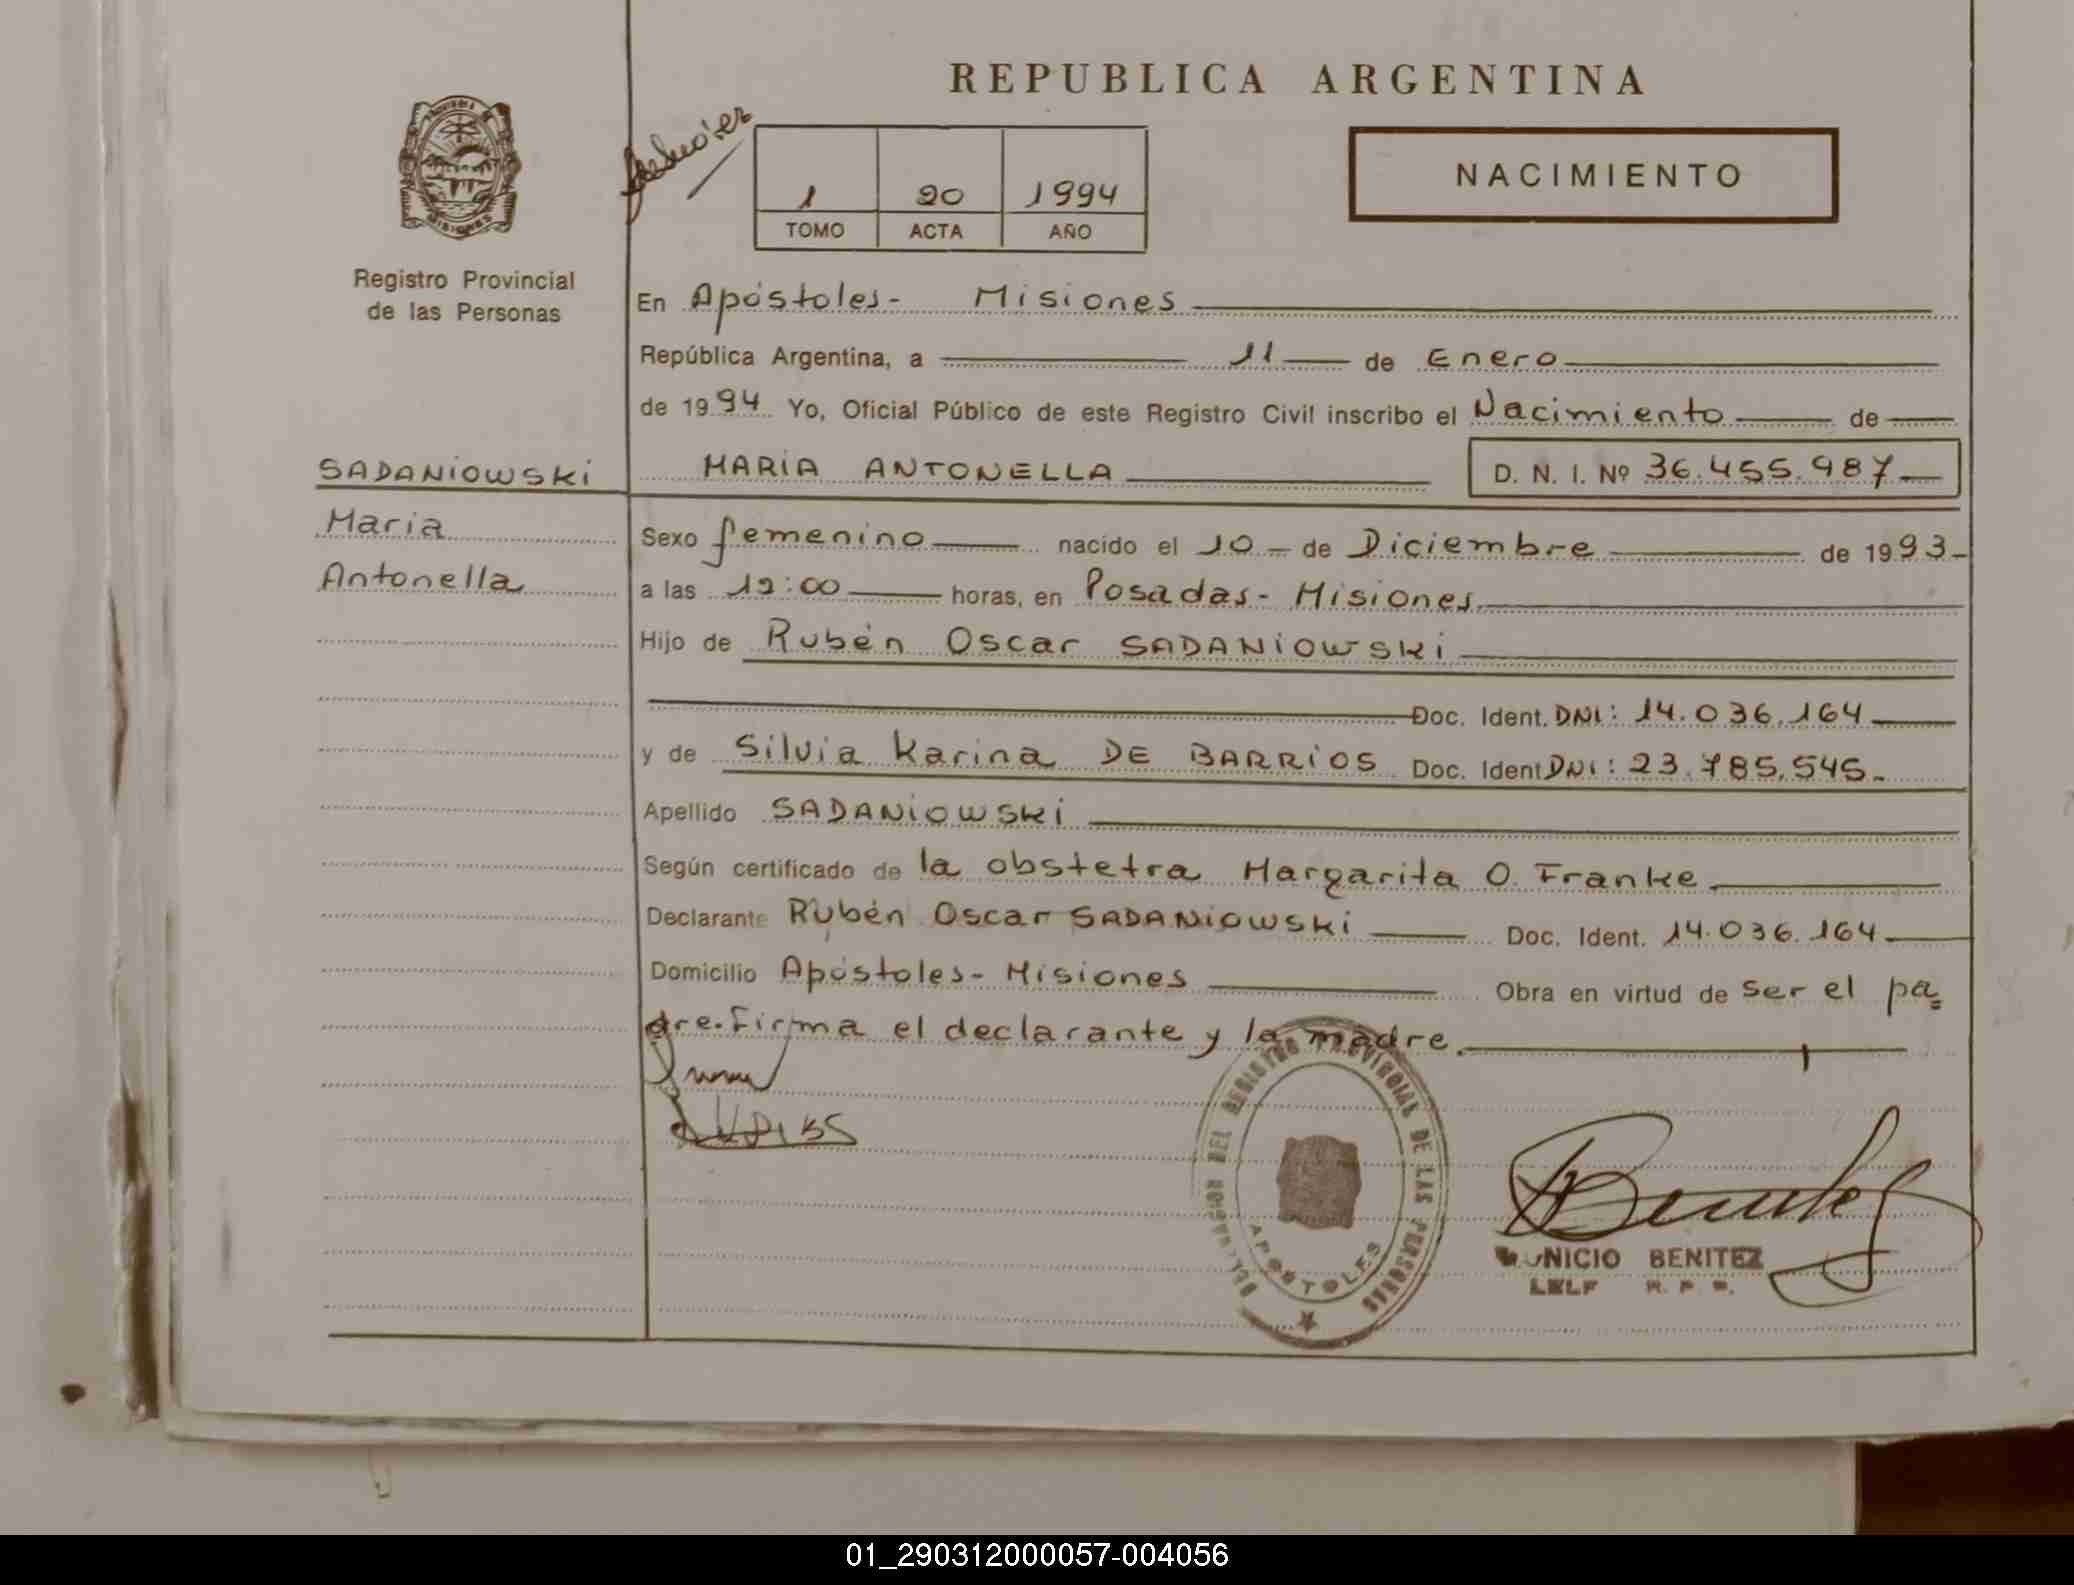 REPUBLICA ARGENTINA
NACIMIENTO
1 20 1994
TOMO ACTA AÑO
MISIONES
Registro Provincial
de las Personas
En Apóstoles- Misiones
República Argentina, a 11 de Enero
de 1994 Yo, Oficial Público de este Registro Civil inscribo el Nacimiento de
SADANiOWSKi
MARiA ANTONELLA D. N. I. Nº 36.455.987
Maria
Antonella
Sexo femenino nacido el 10 de Diciembre de 1993
a las 12:00 horas, en Posadas- Misiones
Hijo de Rubén Oscar SADANiOWSKi
Doc. Ident. DNI: 14.036.164
y de Silvia Karina DE BARRiOS Doc. Ident DNI: 23.785.545.
Apellido SADANiOWSKi
Según certificado de la obstetra Margarita O. Franke
Declarante Rubén Oscar SADANiOWSKi Doc. Ident. 14.036.164
Domicilio Apóstoles- Misiones Obra en virtud de ser el pa=
dre. Firma el declarante y la madre.
DELEGACION DEL REGISTRO PROVINCIAL DE LAS PERSONAS
APOSTOLES
BENITEZ
R. P. P.
01_290312000057-004056